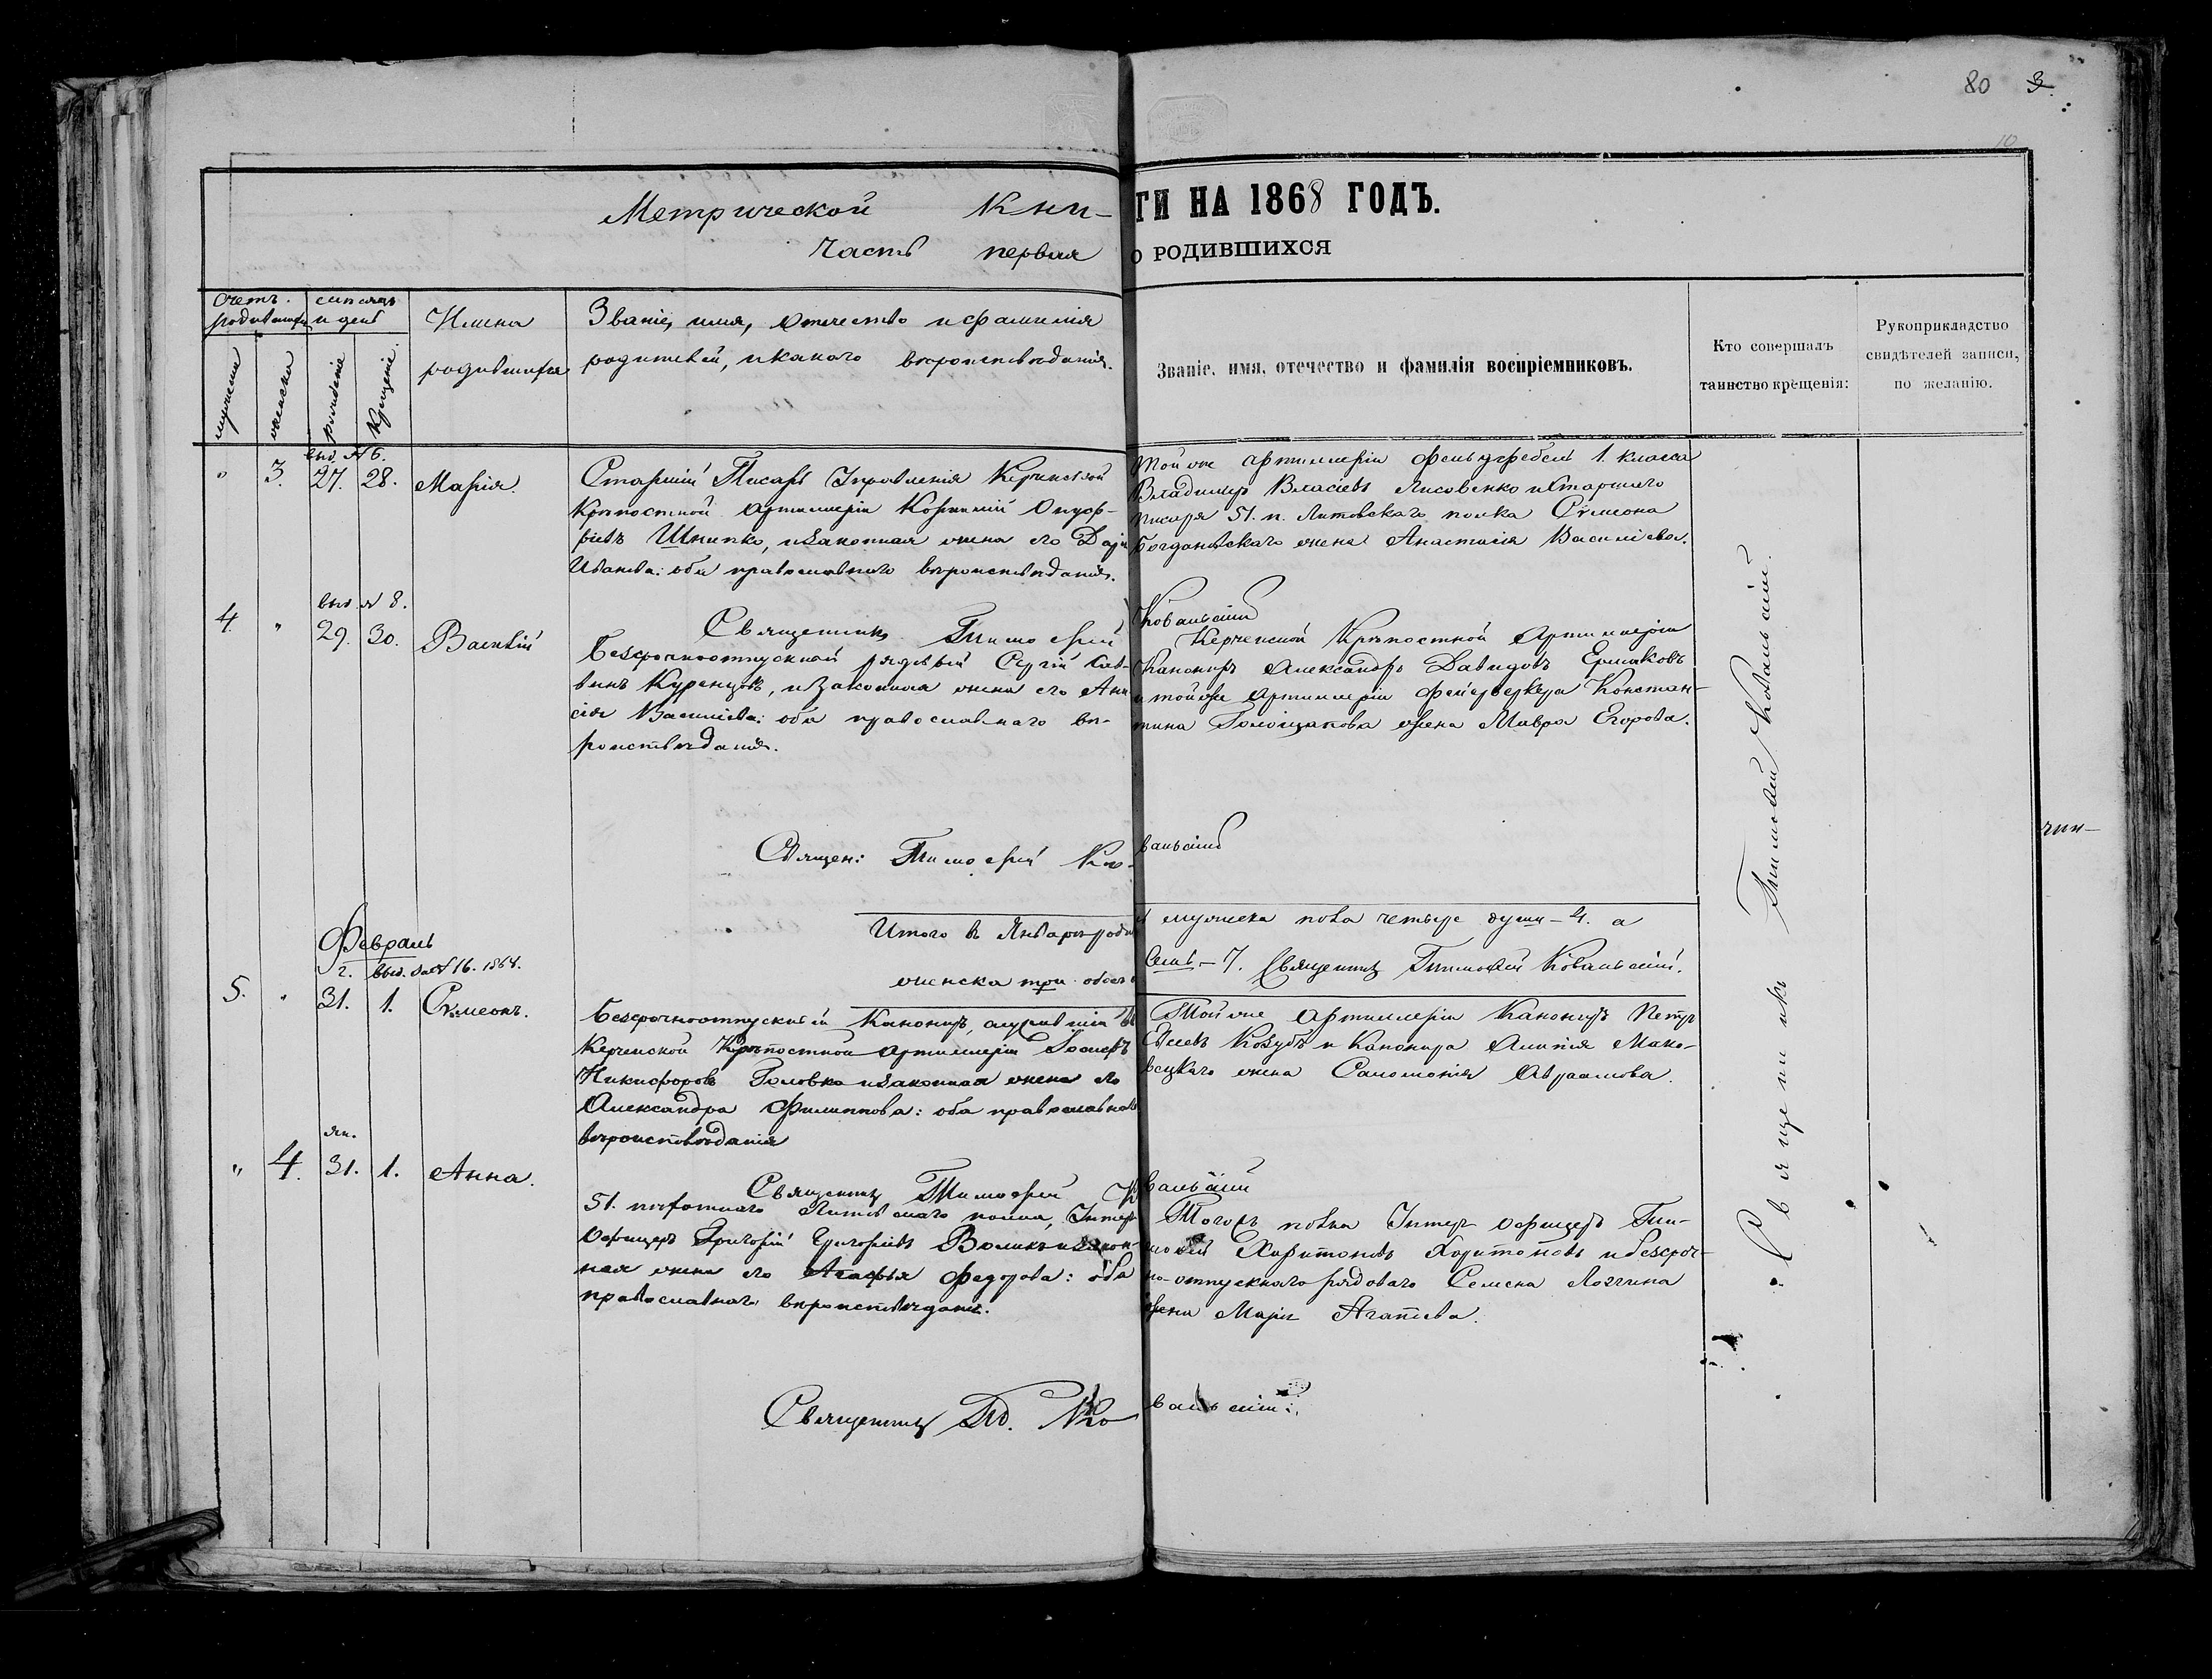 80 3
10
Метрической Кни-
ГИ НА 1868 ГОДЪ.
Часть первая
О РОДИВШИХСЯ
Счетъ родившихся
мѣсяцъ и день
мужеска
женска
рожденіе
крещеніе
Имена
родившихся
Званіе, имя, отчество и фамилія
родителей, и какого вѣроисповѣданія.
Званіе, имя, отчество и фамилія воспріемниковъ.
Кто совершалъ
таинство крещенія:
Рукоприкладство
свидѣтелей записи,
по желанію.
выд. № 6.
" 3. 27. 28. Марія.
Старшій Писарь Управленія Керченской
Крѣпостной Артиллеріи Корнилій Онуф-
ріевъ Шнипко, и законная жена его Дарія
Иванова: оба православнаго вѣроисповѣданія.
Той же Артиллеріи фельдфебель 1. класса
Владимиръ Власіевъ Лисовенко и Старшаго
писаря 51. п. Литовскаго полка Сѵмеона
Богдановскаго жена Анастасія Василіева.
Священникъ Тимофей Ковальскій
выд. № 8.
4. " 29. 30. Василій
Безсрочноотпускной рядовый Сергій Сав-
винъ Куренцовъ, и законная жена его Ани-
сія Василіева: оба православнаго вѣ-
роисповѣданія.
Керченской Крѣпостной Артиллеріи
Канониръ Александръ Давидовъ Ермаковъ
и той же Артиллеріи фейерверкера Констан-
тина Голощапова жена Мавра Егорова.
Священ: Тимофей Ковальскій
Итого въ Январѣ родил мужеска пола четыре души - 4. а
женска три обоего Семь - 7. Священникъ Тимофей Ковальскій.
Февраль
г. выд. № 16. 1864.
5. " 31. 1. Сѵмеонъ.
Безсрочноотпускный Канониръ, служившій въ
Керченской Крѣпостной Артиллеріи Іосифъ
Никифоровъ Головко и законная жена его
Александра Филиппова: оба православнаго
вѣроисповѣданія
Той же Артиллеріи Канониръ Петръ
Козубъ и Канонира Мако-
вецкаго жена Саломонія Авраамова.
Священникъ Тимофей Ковальскій
ян.
" 4. 31. 1. Анна.
51. пѣхотнаго Литовскаго полка, Унтеръ
Офицеръ Григорій Григоріевъ Воликъ и закон-
ная жена его Агафія Федорова: оба
православнаго вѣроисповѣданія.
Тогожъ полка Унтеръ Офицеръ Ти-
мофей Харитоновъ Харитоновъ и безсроч-
но-отпускнаго рядоваго Семена Логгина
жена Марія Агапіева.
Священникъ Ковальскій.
Священникъ Тимофей Ковальскій.
чин-